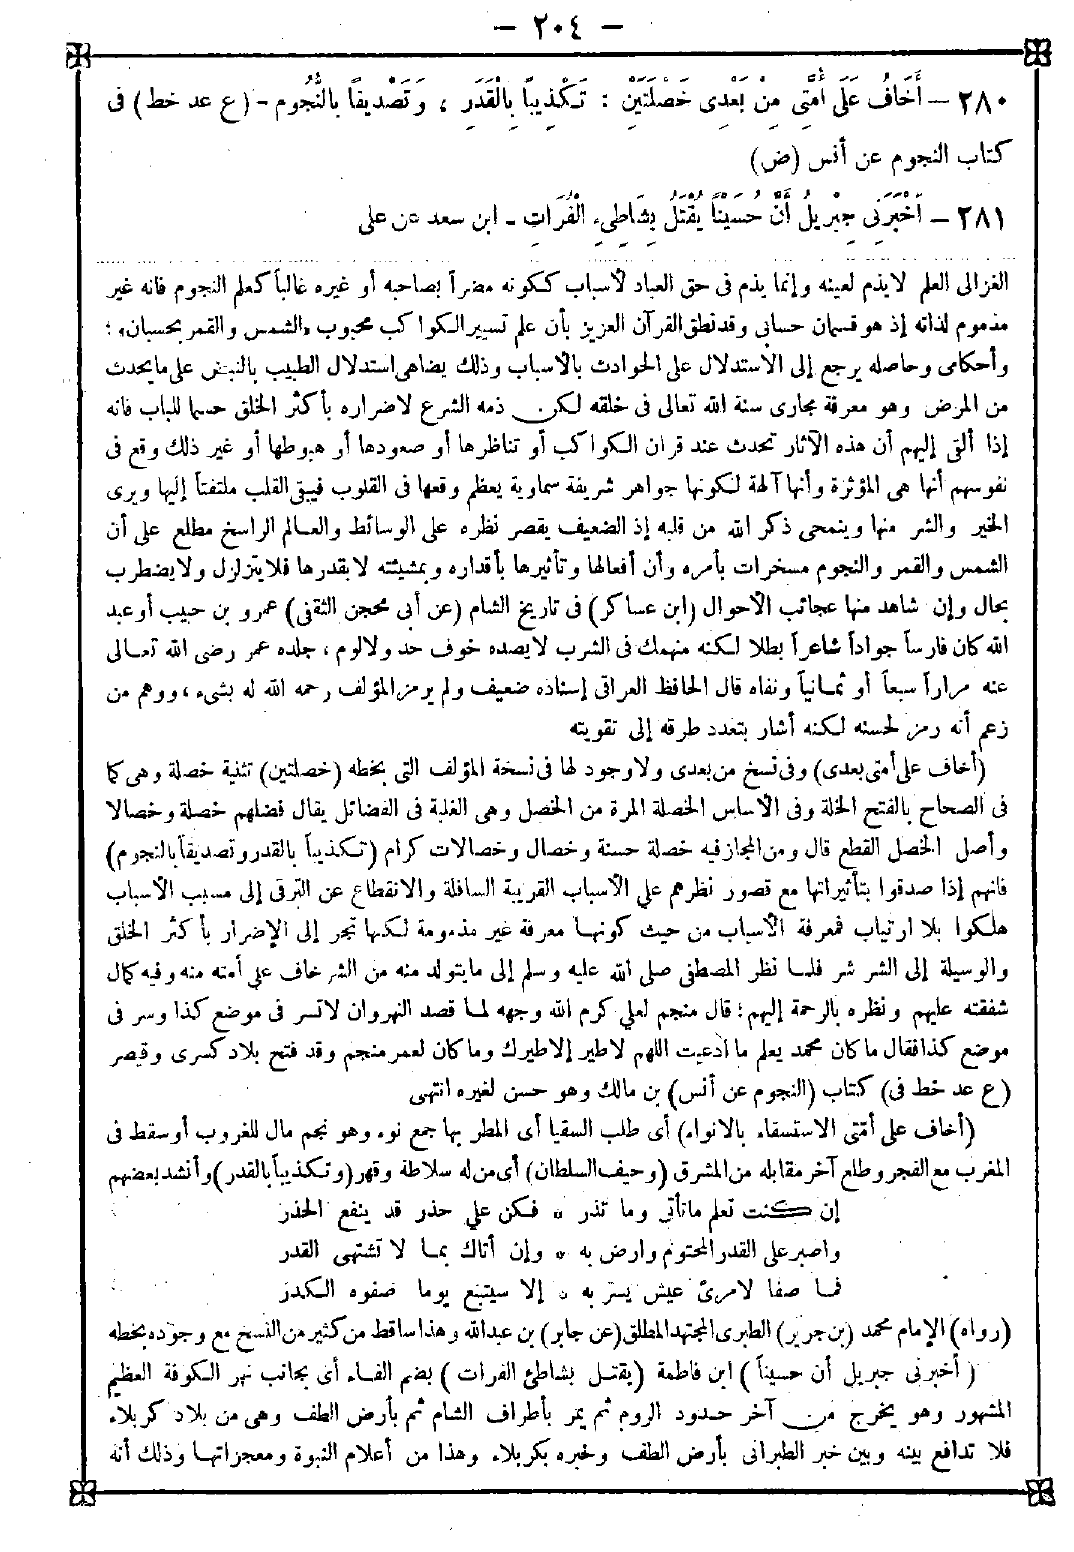 — ٢٠٤ —
٢٨٠ – أَخَافُ عَلَى أُمَّتِى مِنْ بَعْدِى خَصْلَتَيْنِ : تَكْذِيباً بِالْقَدَرِ ، وَتَصْدِيقاً بِالنُّجُومِ – (ع عد خط) فى
كتاب النجوم عن أنس (ض)
٢٨١ – أَخْبَرَنِى جِبْرِيلُ أَنَّ حُسَيْناً يُقْتَلُ بِشَاطِىءِ الْفُرَاتِ – ابن سعد عن على
الغزالى العلم لايذم لعينه وإنما يذم فى حق العباد لأسباب ككونه مضراً بصاحبه أو غيره غالباً كعلم النجوم فانه غير
مذموم لذاته إذ هو قسمان حسابى وقد نطق القرآن العزيز بأن علم تسيير الكواكب محبوب «الشمس والقمر بحسبان» ؛
وأحكامى وحاصله يرجع إلى الاستدلال على الحوادث بالأسباب وذلك يضاهى استدلال الطبيب بالنبض على مايحدث
من المرض وهو معرفة مجارى سنة الله تعالى فى خلقه لكن ذمه الشرع لاضراره بأكثر الخلق حسما للباب فانه
إذا ألقى إليهم أن هذه الآثار تحدث عند قران الكواكب أو تناظرها أو صعودها أو هبوطها أو غير ذلك وقع فى
نفوسهم أنها هى المؤثرة وأنها آلهة لكونها جواهر شريفة سماوية يعظم وقعها فى القلوب فيبقى القلب ملتفتاً إليها ويرى
الخير والشر منها وينمحى ذكر الله من قلبه إذ الضعيف يقصر نظره على الوسائط والعالم الراسخ مطلع على أن
الشمس والقمر والنجوم مسخرات بأمره وأن أفعالها وتأثيرها بأقداره وبمشيئته لابقدرها فلايتزلزل ولايضطرب
بحال وإن شاهد منها عجائب الأحوال (ابن عساكر) فى تاريخ الشام (عن أبى محجن الثقفى) عمرو بن حبيب أو عبد
الله كان فارساً جواداً شاعراً بطلا لكنه منهمك فى الشرب لايصده خوف حد ولالوم ، جلده عمر رضى الله تعالى
عنه مراراً سبعاً أو ثمانياً ونفاه قال الحافظ العراقى إسناده ضعيف ولم يرمز المؤلف رحمه الله له بشىء ، ووهم من
زعم أنه رمز لحسنه لكنه أشار بتعدد طرقه إلى تقويته
(أخاف على أمتى بعدى) وفى نسخ من بعدى ولاوجود لها فى نسخة المؤلف التى بخطه (خصلتين) تثنية خصلة وهى كما
فى الصحاح بالفتح الخلة وفى الأساس الخصلة المرة من الخصل وهى الغلبة فى الفضائل يقال فضلهم خصلة وخصالا
وأصل الخصل القطع قال ومن المجاز فيه خصلة حسنة وخصال وخصالات كرام (تكذيباً بالقدر وتصديقاً بالنجوم)
فانهم إذا صدقوا بتأثيراتها مع قصور نظرهم على الأسباب القريبة السافلة والانقطاع عن الترقى إلى مسبب الأسباب
هلكوا بلا ارتياب فمعرفة الأسباب من حيث كونها معرفة غير مذمومة لكنها تجر إلى الإضرار بأكثر الخلق
والوسيلة إلى الشر شر فلما نظر المصطفى صلى الله عليه وسلم إلى مايتولد منه من الشر خاف على أمته منه وفيه كمال
شفقته عليهم ونظره بالرحمة إليهم ؛ قال منجم لعلى كرم الله وجهه لما قصد النهروان لاتسر فى موضع كذا وسر فى
موضع كذا فقال ما كان محمد يعلم ما ادعيت اللهم لاطير إلاطيرك وما كان لعمر منجم وقد فتح بلاد كسرى وقيصر
(ع عد خط فى) كتاب (النجوم عن أنس) بن مالك وهو حسن لغيره انتهى
(أخاف على أمتى الاستسقاء بالانواء) أى طلب السقيا أى المطر بها جمع نوء وهو نجم مال للغروب أو سقط فى
المغرب مع الفجر وطلع آخر مقابله من المشرق (وحيف السلطان) أى من له سلاطة وقهر (وتكذيباً بالقدر) وأنشد بعضهم
إن كنت تعلم ماتأتى وما تذر * فكن على حذر قد ينفع الحذر
واصبر على القدر المحتوم وارض به * وإن أتاك بما لا تشتهى القدر
فما صفا لامرئ عيش يسر به * إلا سيتبع يوما صفوه الكدر
(رواه) الإمام محمد (بن جرير) الطبرى المجتهد المطلق (عن جابر) بن عبدالله وهذا ساقط من كثير من النسخ مع وجوده بخطه
( أخبرنى جبريل أن حسيناً ) ابن فاطمة ( يقتل بشاطئ الفرات ) بضم الفاء أى بجانب نهر الكوفة العظيم
المشهور وهو يخرج من آخر حدود الروم ثم يمر بأطراف الشام ثم بأرض الطف وهى من بلاد كربلاء
فلا تدافع بينه وبين خبر الطبرانى بأرض الطف وخبره بكربلاء وهذا من أعلام النبوة ومعجزاتها وذلك أنه